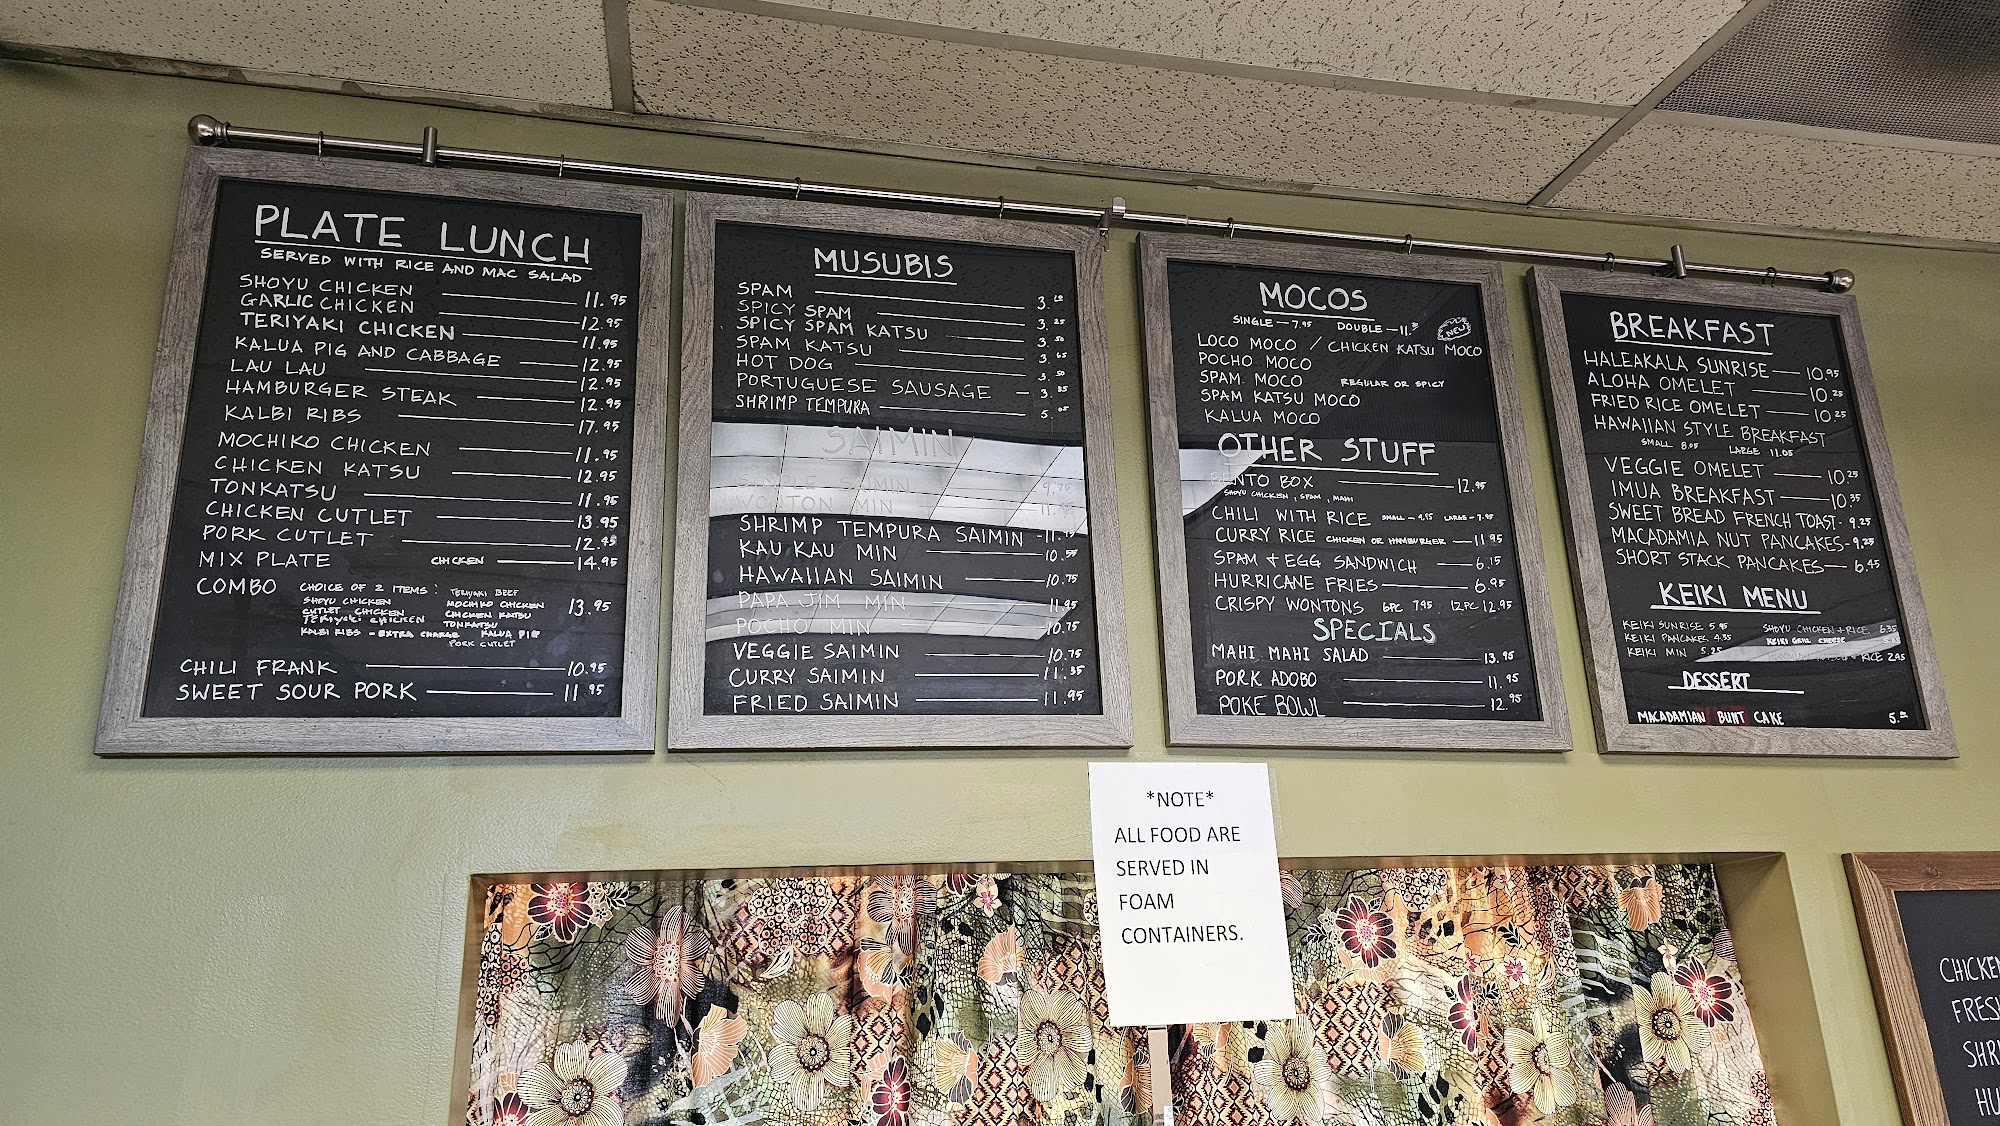 PLATE LUNCH
SERVED WITH RICE AND MAC SALAD
SHOYU CHICKEN 11.95
GARLIC CHICKEN 12.95
TERIYAKI CHICKEN 11.95
KALUA PIG AND CABBAGE 12.95
LAU LAU 12.95
HAMBURGER STEAK 12.95
KALBI RIBS 17.95
MOCHIKO CHICKEN 11.95
CHICKEN KATSU 12.95
TONKATSU 11.95
CHICKEN CUTLET 13.95
PORK CUTLET 12.95
MIX PLATE CHICKEN 14.95
COMBO CHOICE OF 2 ITEMS: TERIYAKI BEEF 13.95
SHOYU CHICKEN MOCHIKO CHICKEN
CUTLET CHICKEN CHICKEN KATSU
TERIYAKI CHICKEN TONKATSU
KALBI RIBS - EXTRA CHARGE KALUA PIG
PORK CUTLET
CHILI FRANK 10.95
SWEET SOUR PORK 11 95
MUSUBIS
SPAM 3.
SPICY SPAM 3.25
SPICY SPAM KATSU 3.50
SPAM KATSU 3.
HOT DOG 3.50
PORTUGUESE SAUSAGE 3.
SHRIMP TEMPURA 5.
SAIMIN
SIMPLE SAIMIN 9.
WONTON MIN 11.
SHRIMP TEMPURA SAIMIN 11.
KAU KAU MIN 10.
HAWAIIAN SAIMIN 10.75
PAPA JIM MIN 11.95
POCHO MIN 10.75
VEGGIE SAIMIN 10.75
CURRY SAIMIN 11.
FRIED SAIMIN 11.95
MOCOS
SINGLE - 7.95 DOUBLE - 11.
NEW
LOCO MOCO / CHICKEN KATSU MOCO
POCHO MOCO
SPAM MOCO REGULAR OR SPICY
SPAM KATSU MOCO
KALUA MOCO
OTHER STUFF
BENTO BOX 12.95
SHOYU CHICKEN, SPAM, MAHI
CHILI WITH RICE SMALL - 4.95 LARGE - 7.95
CURRY RICE CHICKEN OR HAMBURGER 11 95
SPAM + EGG SANDWICH 6.15
HURRICANE FRIES 6.95
CRISPY WONTONS 6PC 7.95 12PC 12.95
SPECIALS
MAHI MAHI SALAD 13.95
PORK ADOBO 11.95
POKE BOWL 12.95
BREAKFAST
HALEAKALA SUNRISE 10.95
ALOHA OMELET 10.25
FRIED RICE OMELET 10.25
HAWAIIAN STYLE BREAKFAST
SMALL 8.05 LARGE 11.05
VEGGIE OMELET 10.25
IMUA BREAKFAST 10.35
SWEET BREAD FRENCH TOAST - 9.25
MACADAMIA NUT PANCAKES - 9.25
SHORT STACK PANCAKES 6.45
KEIKI MENU
KEIKI SUNRISE 5.95 SHOYU CHICKEN + RICE 6.35
KEIKI PANCAKES 4.35 KEIKI GRILL CHEESE
KEIKI MIN 5.25 RICE 2.95
DESSERT
MACADAMIAN BUNT CAKE 5.
*NOTE*
ALL FOOD ARE
SERVED IN
FOAM
CONTAINERS.